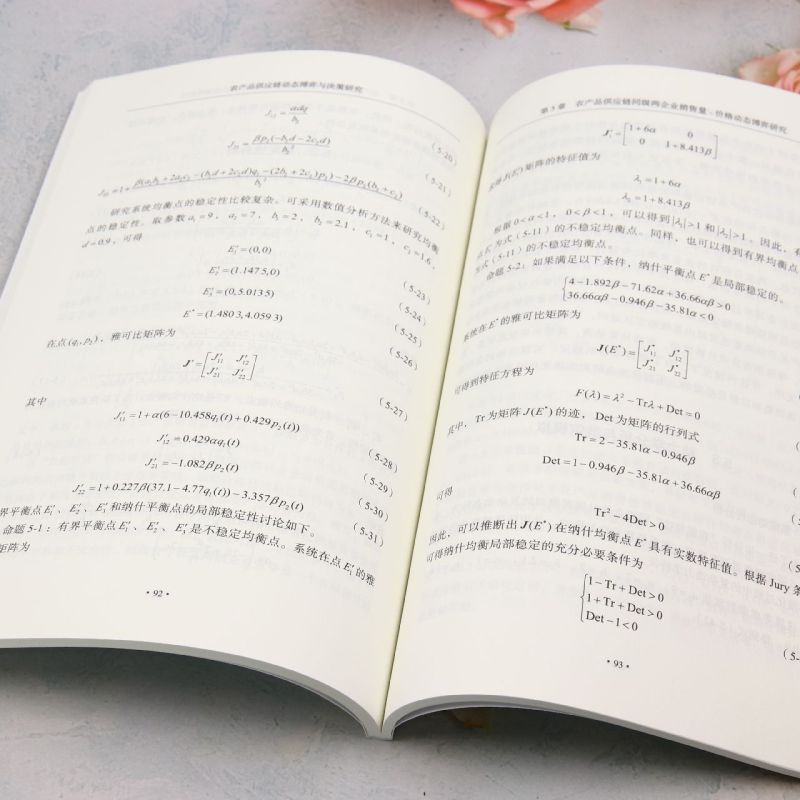 农产品供应链动态博弈与决策研究
J₁₂ = αdq₁/b₂
(5-20)
J₂₁ = βp₂(−b₁d−2c₂d)/b₂²
(5-21)
(5-22)
研究系统均衡点的稳定性比较复杂。可采用数值分析方法来研究均衡
点的稳定性。取参数 a₁=9, a₂=7, b₁=2, b₂=2.1, c₁=1, c₂=1.6,
d=0.9, 可得
E₁′=(0,0)
(5-23)
E₂′=(1.1475,0)
(5-24)
E₃′=(0,5.0135)
(5-25)
E*=(1.4803,4.0593)
(5-26)
在点(q₁,p₂), 雅可比矩阵为
J′=[J₁₁′ J₁₂′
J₂₁′ J₂₂′]
(5-27)
其中
J₁₁′=1+α(6−10.458q₁(t)+0.429p₂(t))
(5-28)
J₁₂′=0.429αq₁(t)
(5-29)
J₂₁′=−1.082βp₂(t)
(5-30)
J₂₂′=1+0.227β(37.1−4.77q₁(t))−3.357βp₂(t)
(5-31)
界平衡点E₁′、E₂′、E₃′和纳什平衡点的局部稳定性讨论如下。
命题 5-1:有界平衡点E₁′、E₂′、E₃′是不稳定均衡点。系统在点E₁′的雅
矩阵为
·92·
第5章 农产品供应链同级两企业销售量-价格动态博弈研究
J₁′=[1+6α 0
0 1+8.413β]
求得J(E₁′)矩阵的特征值为
λ₁=1+6α
λ₂=1+8.413β
根据0<α<1, 0<β<1, 可以得到|λ₁|>1和|λ₂|>1。因此,有
点E₁′为式(5-11)的不稳定均衡点。同样,也可以得到有界均衡点
为式(5-11)的不稳定均衡点。
命题 5-2:如果满足以下条件,纳什平衡点E*是局部稳定的。
{4−1.892β−71.62α+36.66αβ>0
36.66αβ−0.946β−35.81α<0
系统在E*的雅可比矩阵为
J(E*)=[J₁₁* J₁₂*
J₂₁* J₂₂*]
可得到特征方程为
F(λ)=λ²−Trλ+Det=0
其中,Tr为矩阵J(E*)的迹,Det为矩阵的行列式
Tr=2−35.81α−0.946β
Det=1−0.946β−35.81α+36.66αβ
可得
Tr²−4Det>0
因此,可以推断出J(E*)在纳什均衡点E*具有实数特征值。根据 Jury 条
可得纳什均衡局部稳定的充分必要条件为
{1−Tr+Det>0
1+Tr+Det>0
Det−1<0
(5-
·93·